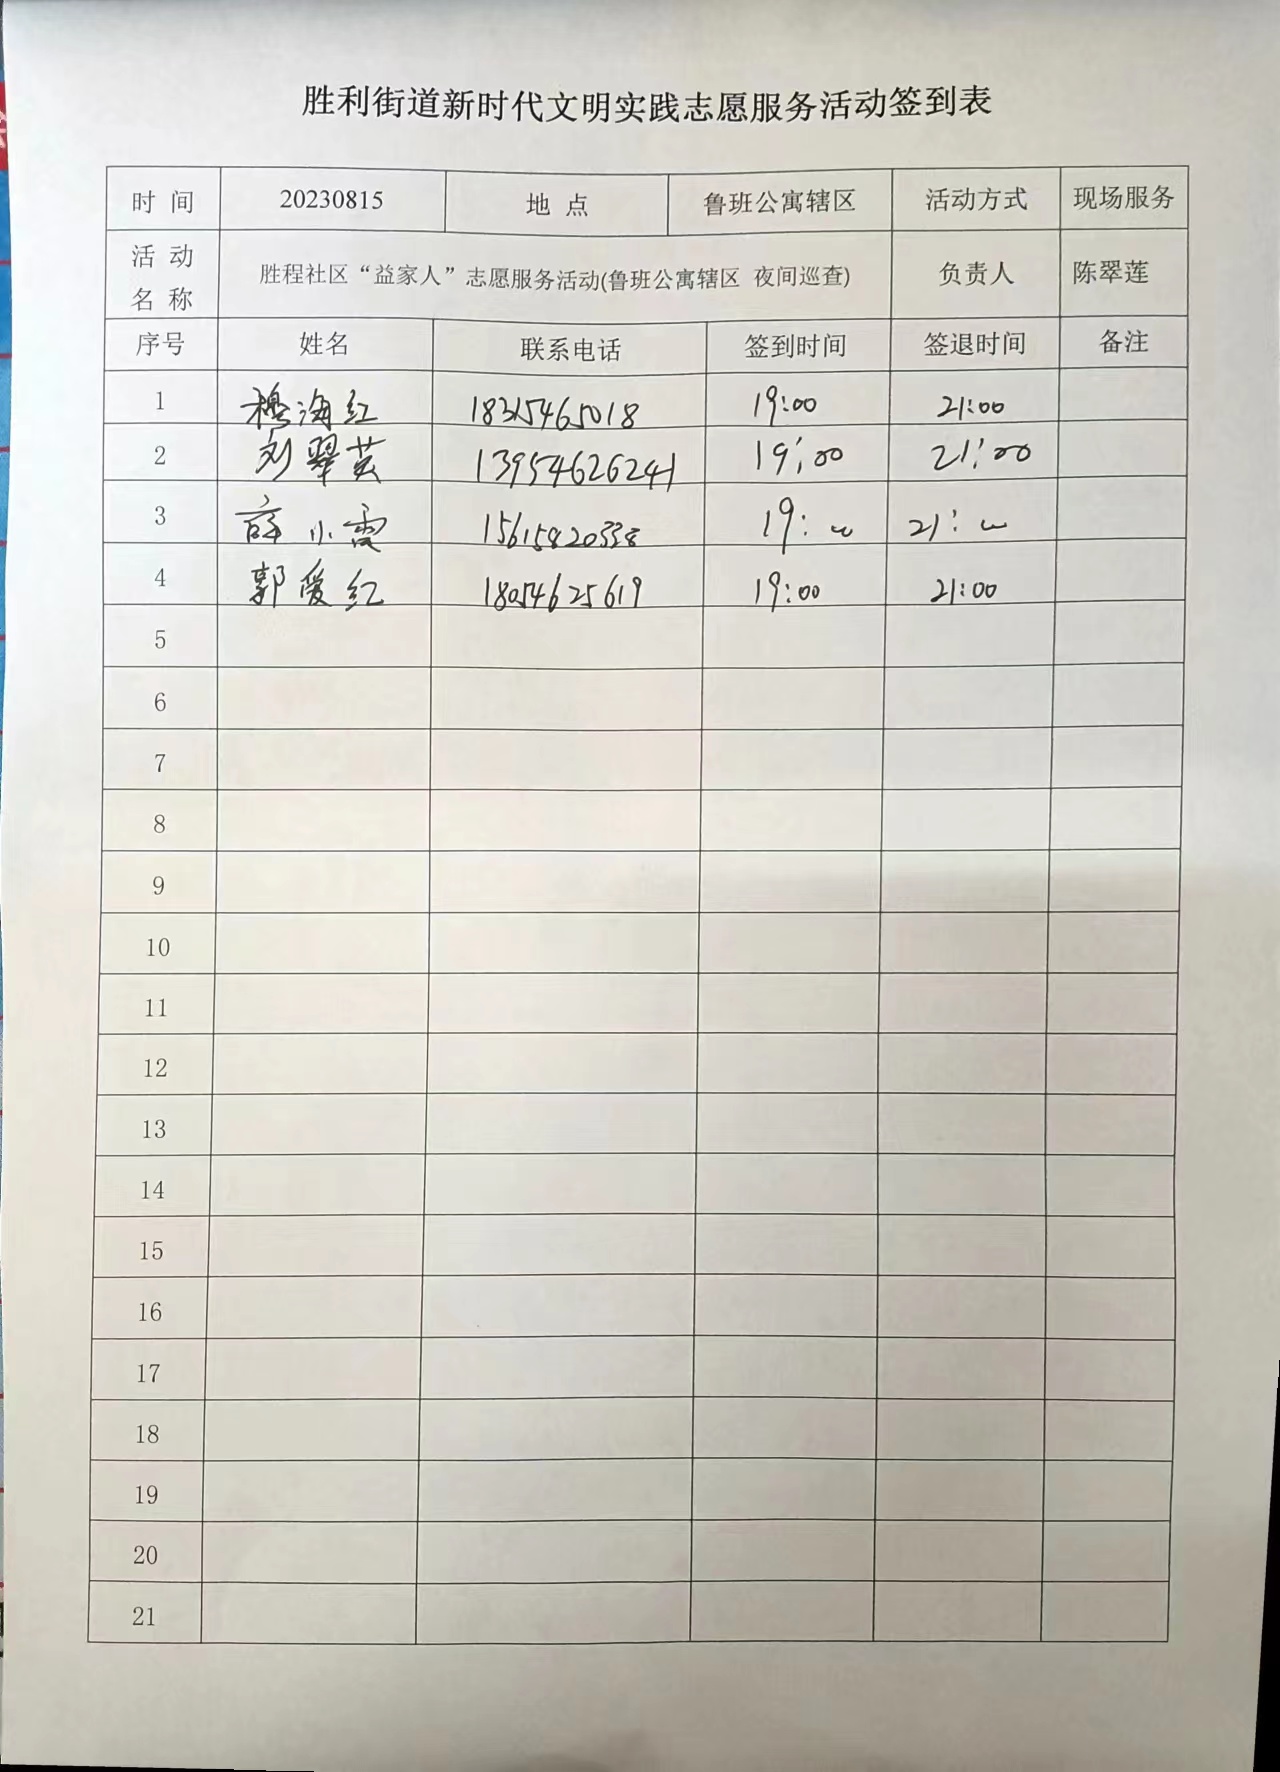 胜利街道新时代文明实践志愿服务活动签到表
时 间 20230815 地 点 鲁班公寓辖区 活动方式 现场服务
活 动 名 称 胜程社区“益家人”志愿服务活动(鲁班公寓辖区 夜间巡查) 负责人 陈翠莲
序号 姓名 联系电话 签到时间 签退时间 备注
1 穆海红 18315465018 19:00 21:00
2 刘翠英 13954626241 19:00 21:00
3 薛小霞 15615820338 19:00 21:00
4 郭爱红 18054625619 19:00 21:00
5
6
7
8
9
10
11
12
13
14
15
16
17
18
19
20
21